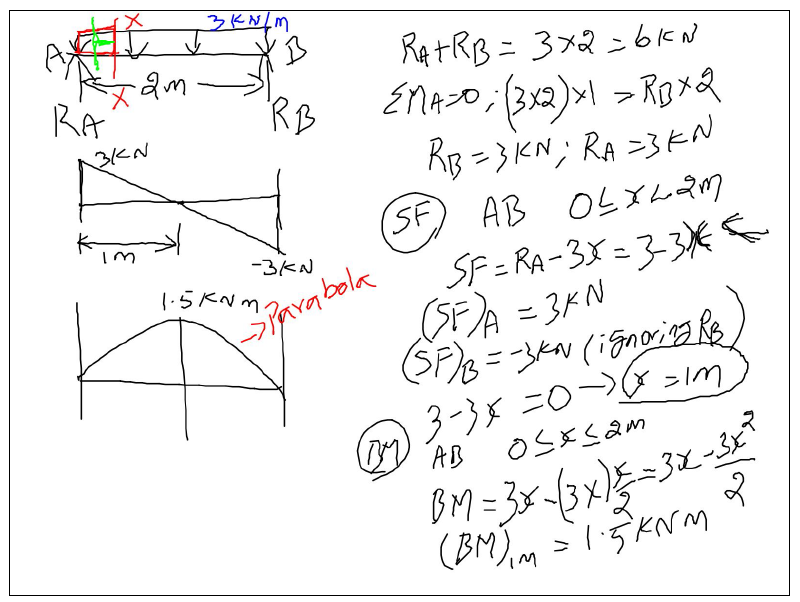 X 3KN/m
A B
2m
X
RA RB
3KN
1m
-3KN
1.5KNm
→Parabola
RA+RB = 3×2 = 6KN
ΣMA=0; (3×2)×1 = RB×2
RB = 3KN; RA = 3KN
SF AB 0≤x≤2m
SF = RA-3x = 3-3x
(SF)A = 3KN
(SF)B = -3KN (ignoring RB)
3-3x = 0 → x = 1m
BM AB 0≤x≤2m
BM = 3x-(3x)x/2 = 3x-3x²/2
(BM)1m = 1.5KNm